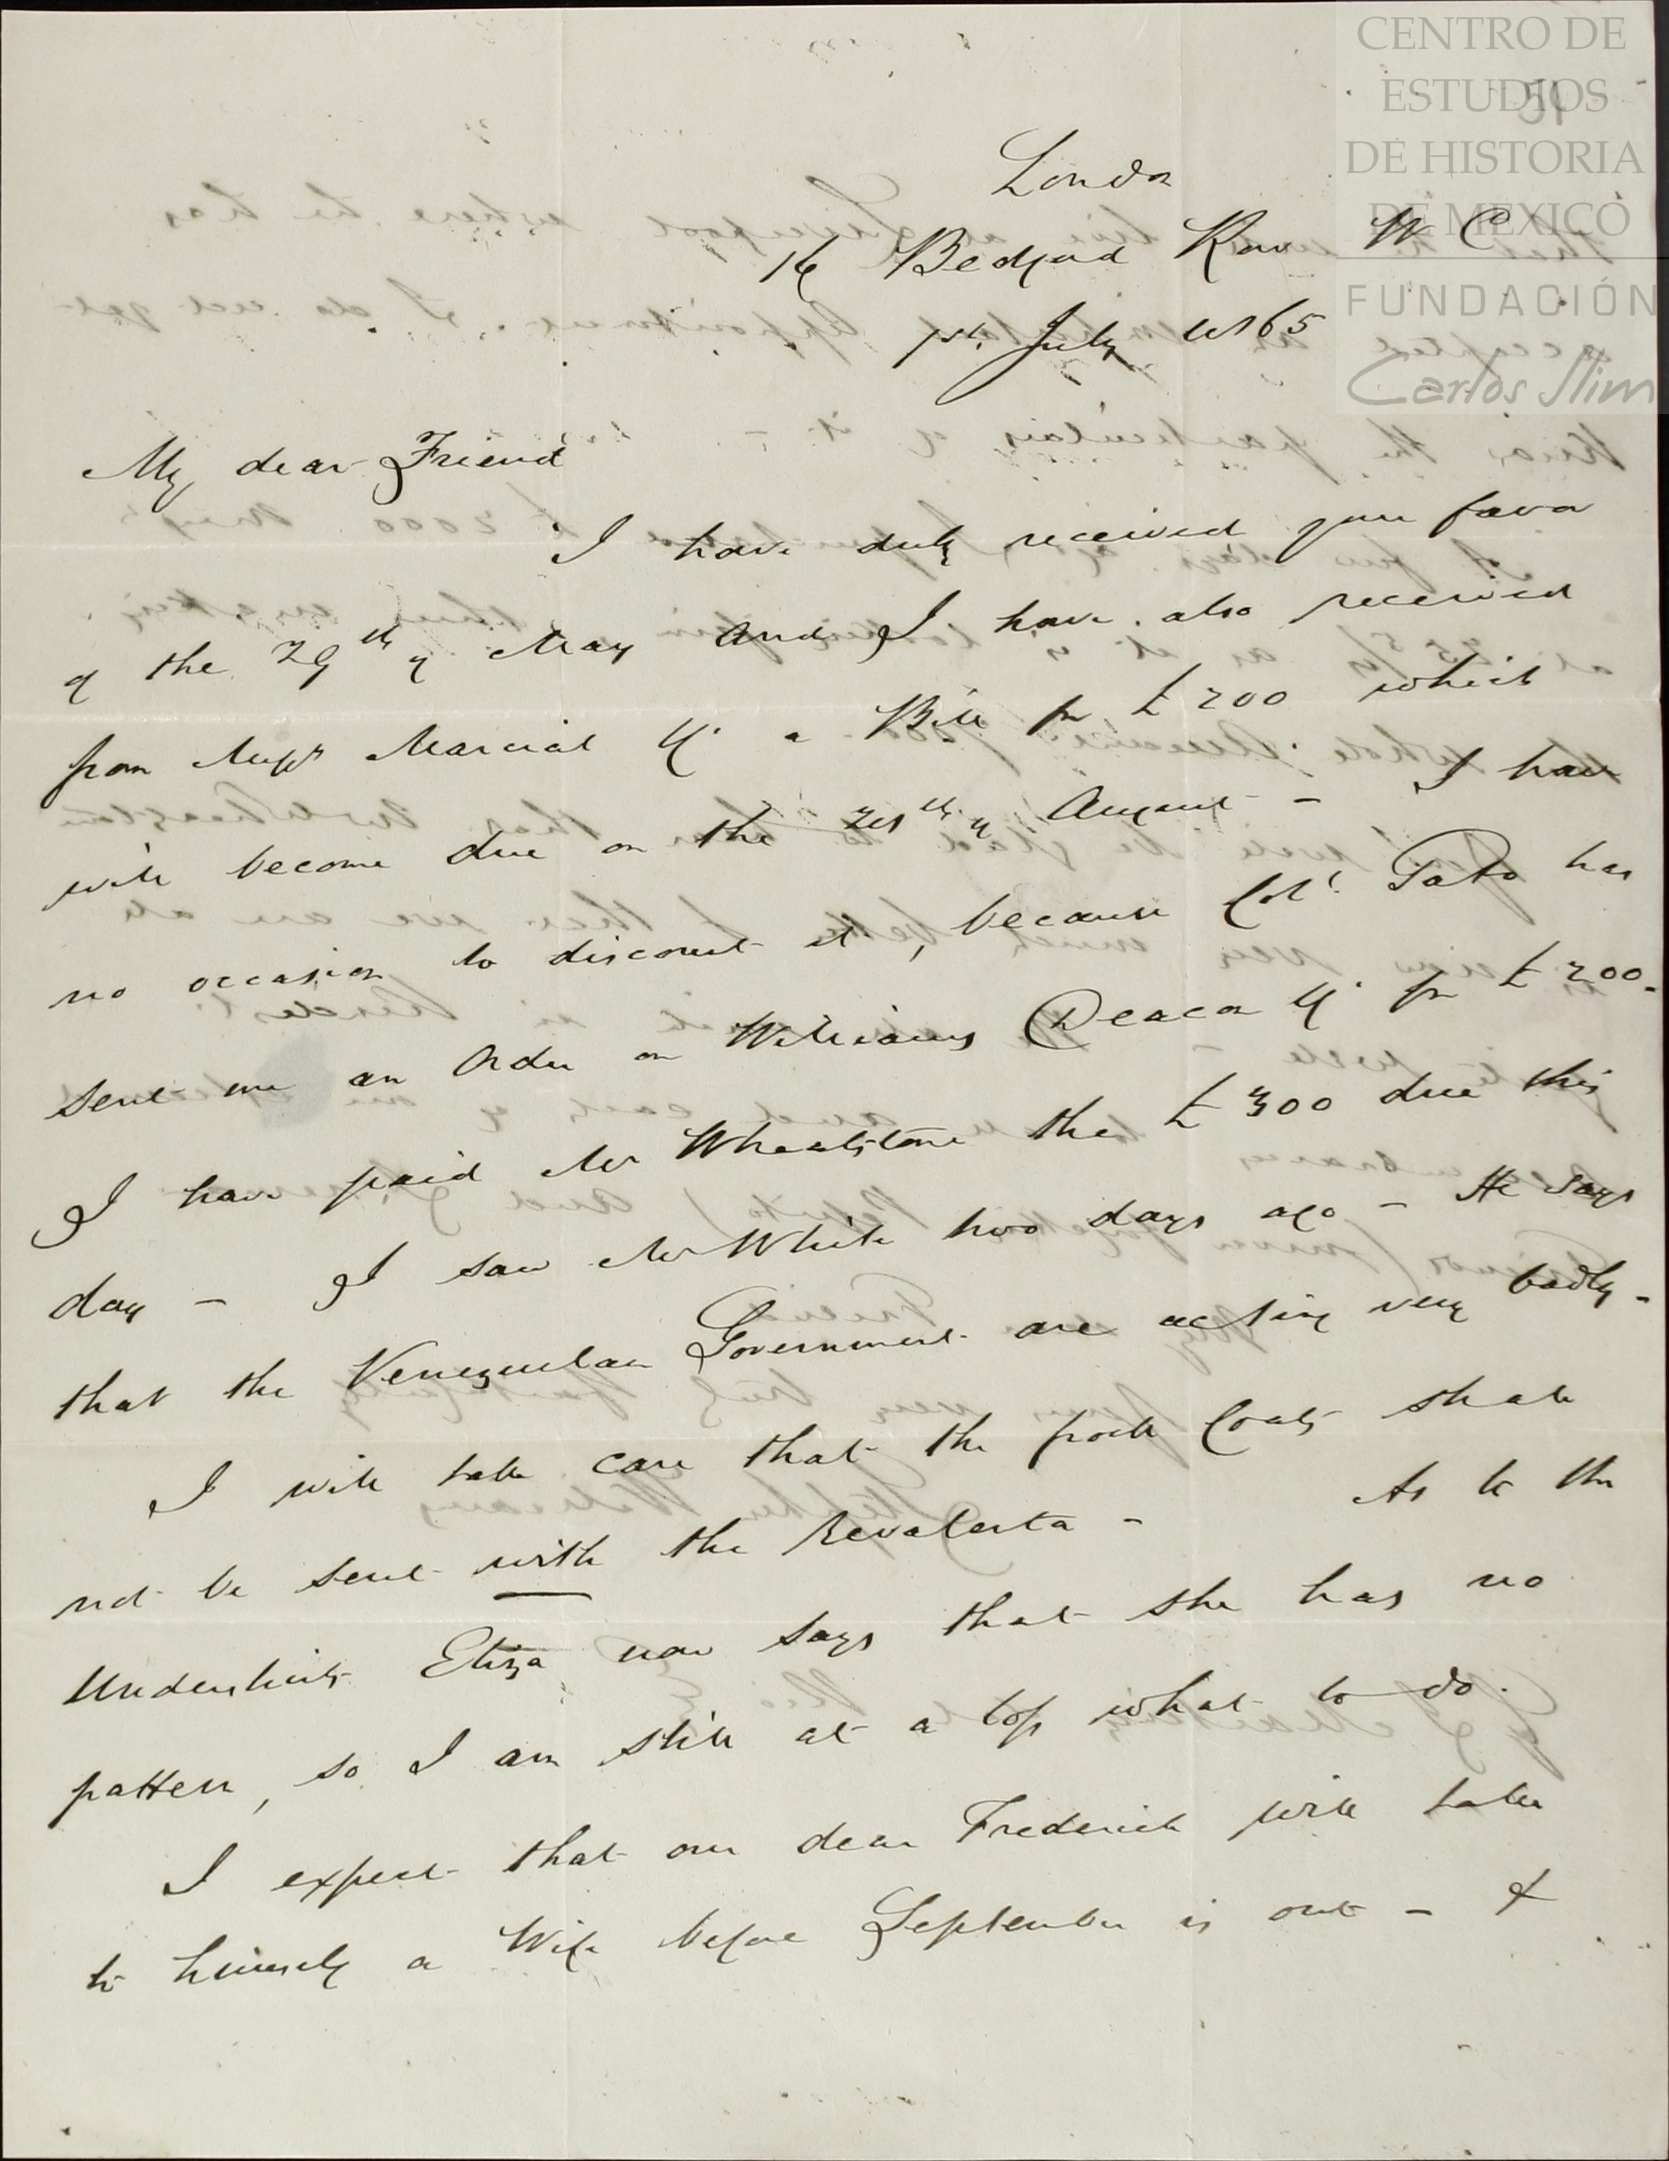 CENTRO DE
ESTUDIOS
DE HISTORIA
DE MEXICO
FUNDACIÓN
Carlos Slim
London
16 Bedford Row W C
1st. July 1865
My dear Friend
I have duly received your favor
of the 29th of May and I have also received
from Messrs Marcial & a Bill for £200 which
will become due on the 28th of August - I have
no occasion to discount it, because Col. Tato has
sent me an Order on Williams Deacon & for £200.
I have paid Mr Wheatstone the £300 due this
day - I saw Mr White two days ago - He says
that the Venezuelan Government are acting very badly -
I will take care that the frock Coats shall
not be sent with the Revalenta - As to the
Undershirts Eliza now says that she has no
pattern, so I am still at a loss what to do.
I expect that our dear Frederick will take
to himself a Wife before September is out - &